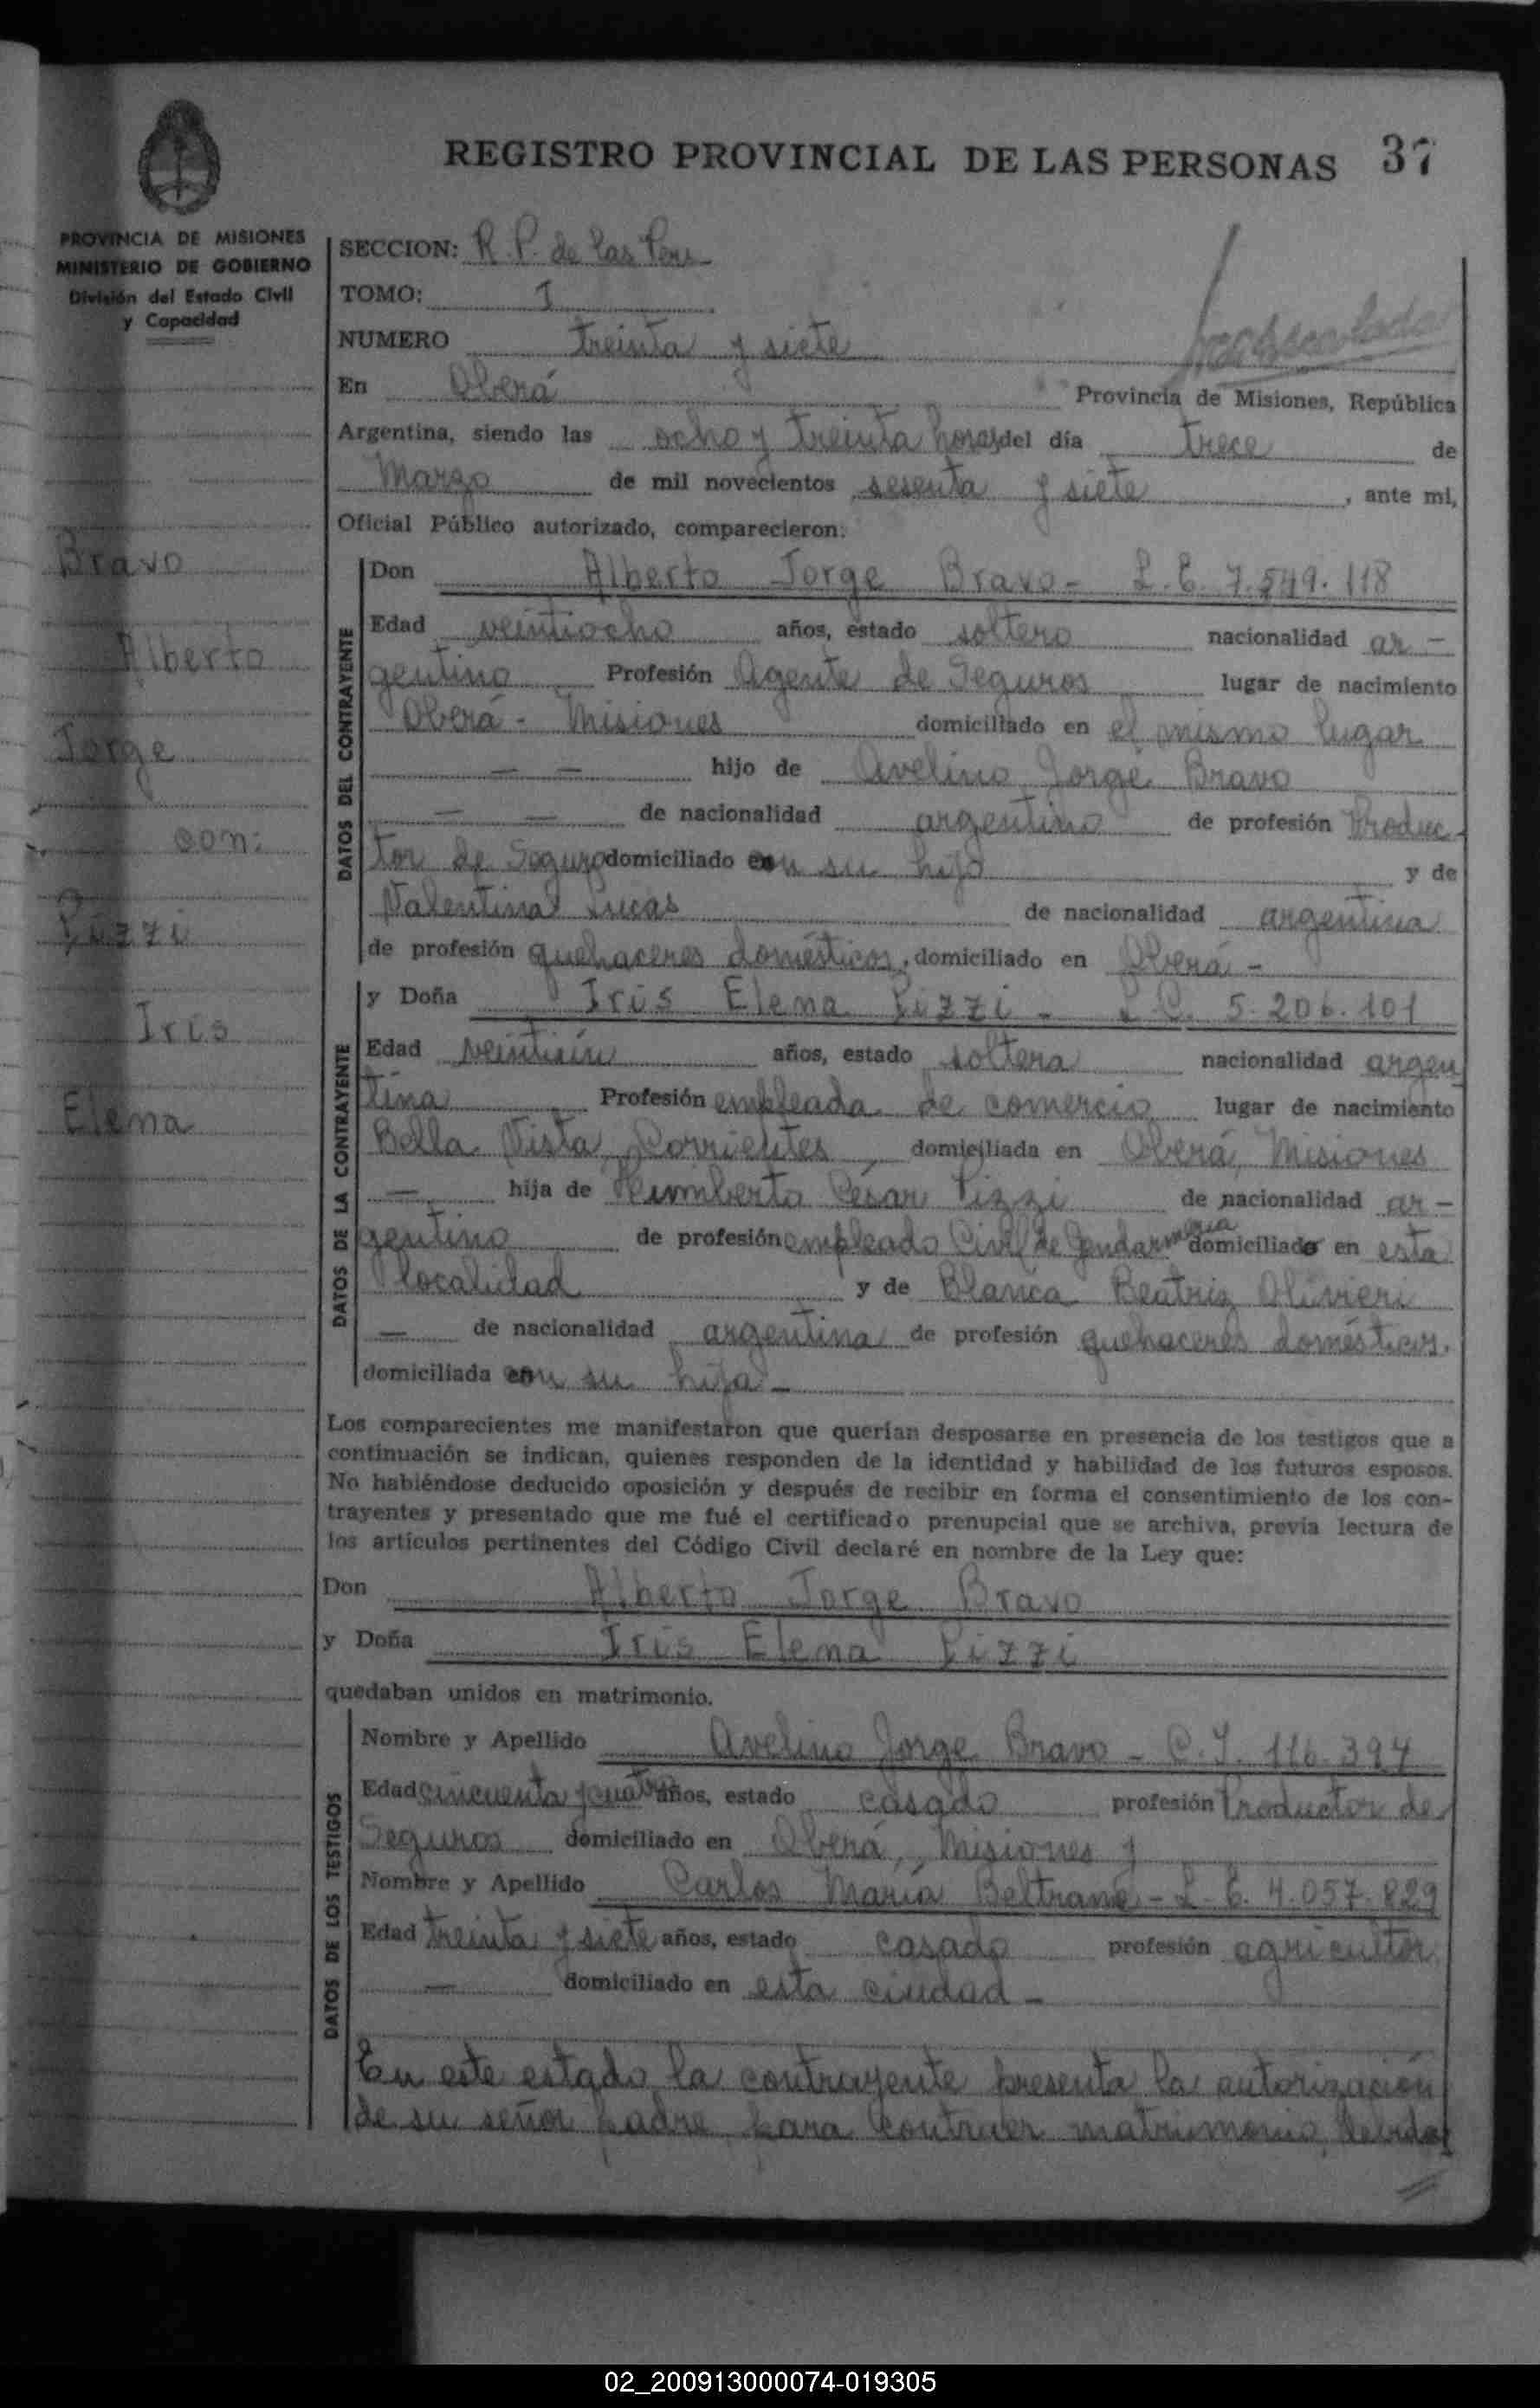 REGISTRO PROVINCIAL DE LAS PERSONAS 37
PROVINCIA DE MISIONES
MINISTERIO DE GOBIERNO
División del Estado Civil
y Capacidad
Bravo
Alberto
Jorge
con:
Pizzi
Iris
Elena
SECCION: R. P. de las Pers
TOMO: I
NUMERO treinta y siete
En Oberá Provincia de Misiones, República
Argentina, siendo las ocho y treinta horas del día trece de
Marzo de mil novecientos sesenta y siete, ante mi,
Oficial Público autorizado, comparecieron:
DATOS DEL CONTRAYENTE
Don Alberto Jorge Bravo - L. E. 7.549.118
Edad veintiocho años, estado soltero nacionalidad ar -
gentino Profesión Agente de Seguros lugar de nacimiento
Oberá - Misiones domiciliado en el mismo lugar
— — hijo de Avelino Jorge Bravo
— — de nacionalidad argentino de profesión Produc-
tor de Seguro domiciliado con su hijo y de
Valentina Lucas de nacionalidad argentina
de profesión quehaceres domésticos, domiciliado en Oberá -
DATOS DE LA CONTRAYENTE
y Doña Iris Elena Pizzi - L. C. 5.206.101
Edad veintiún años, estado soltera nacionalidad argen
tina Profesión empleada de comercio lugar de nacimiento
Bella Vista, Corrientes, domiciliada en Oberá, Misiones
— hija de Humberto César Pizzi de nacionalidad ar -
gentino de profesión empleado Civil de Gendarmería domiciliado en esta
localidad y de Blanca Beatriz Olivieri
— de nacionalidad argentina de profesión quehaceres domésticos,
domiciliada con su hija -
Los comparecientes me manifestaron que querían desposarse en presencia de los testigos que a
continuación se indican, quienes responden de la identidad y habilidad de los futuros esposos.
No habiéndose deducido oposición y después de recibir en forma el consentimiento de los con-
trayentes y presentado que me fué el certificado prenupcial que se archiva, previa lectura de
los artículos pertinentes del Código Civil declaré en nombre de la Ley que:
Don Alberto Jorge Bravo
y Doña Iris Elena Pizzi
quedaban unidos en matrimonio.
DATOS DE LOS TESTIGOS
Nombre y Apellido Avelino Jorge Bravo - C. I. 116.394
Edad cincuenta y cuatro años, estado casado profesión Productor de
Seguros domiciliado en Oberá, Misiones y
Nombre y Apellido Carlos María Beltrame - L. E. 4.057.829
Edad treinta y siete años, estado casado profesión agricultor
— domiciliado en esta ciudad -
En este estado la contrayente presenta la autorización
de su señor padre para contraer matrimonio, debida
02_200913000074-019305